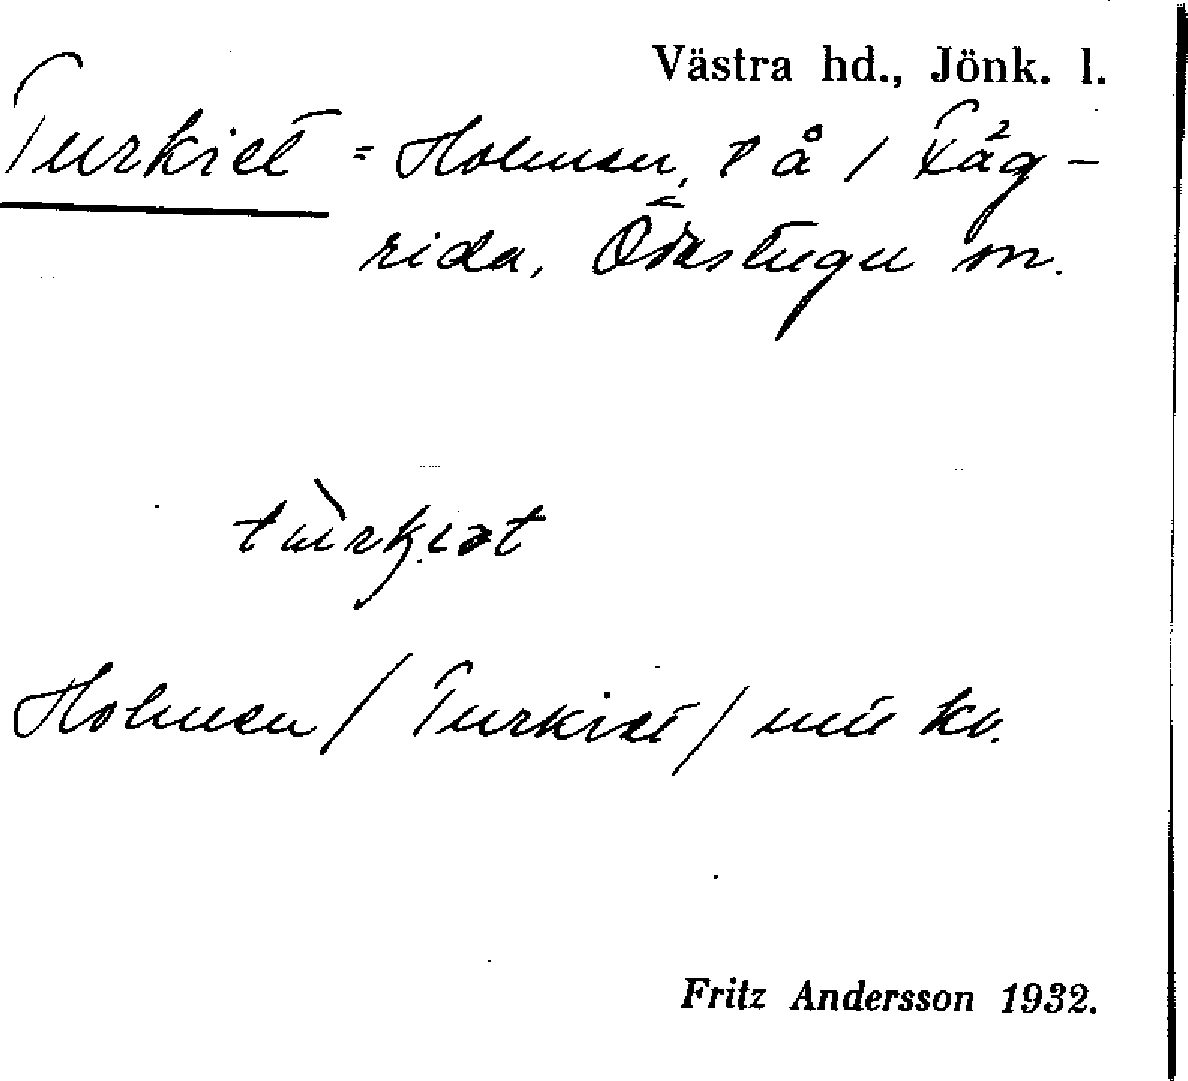 Västra hd., Jönk. l.
Turkiet = Holmen, på / Fåg-
rida, Ödestugu sn.
tùrkiət
Holmen / Turkiet / mit kv.
Fritz Andersson 1932.